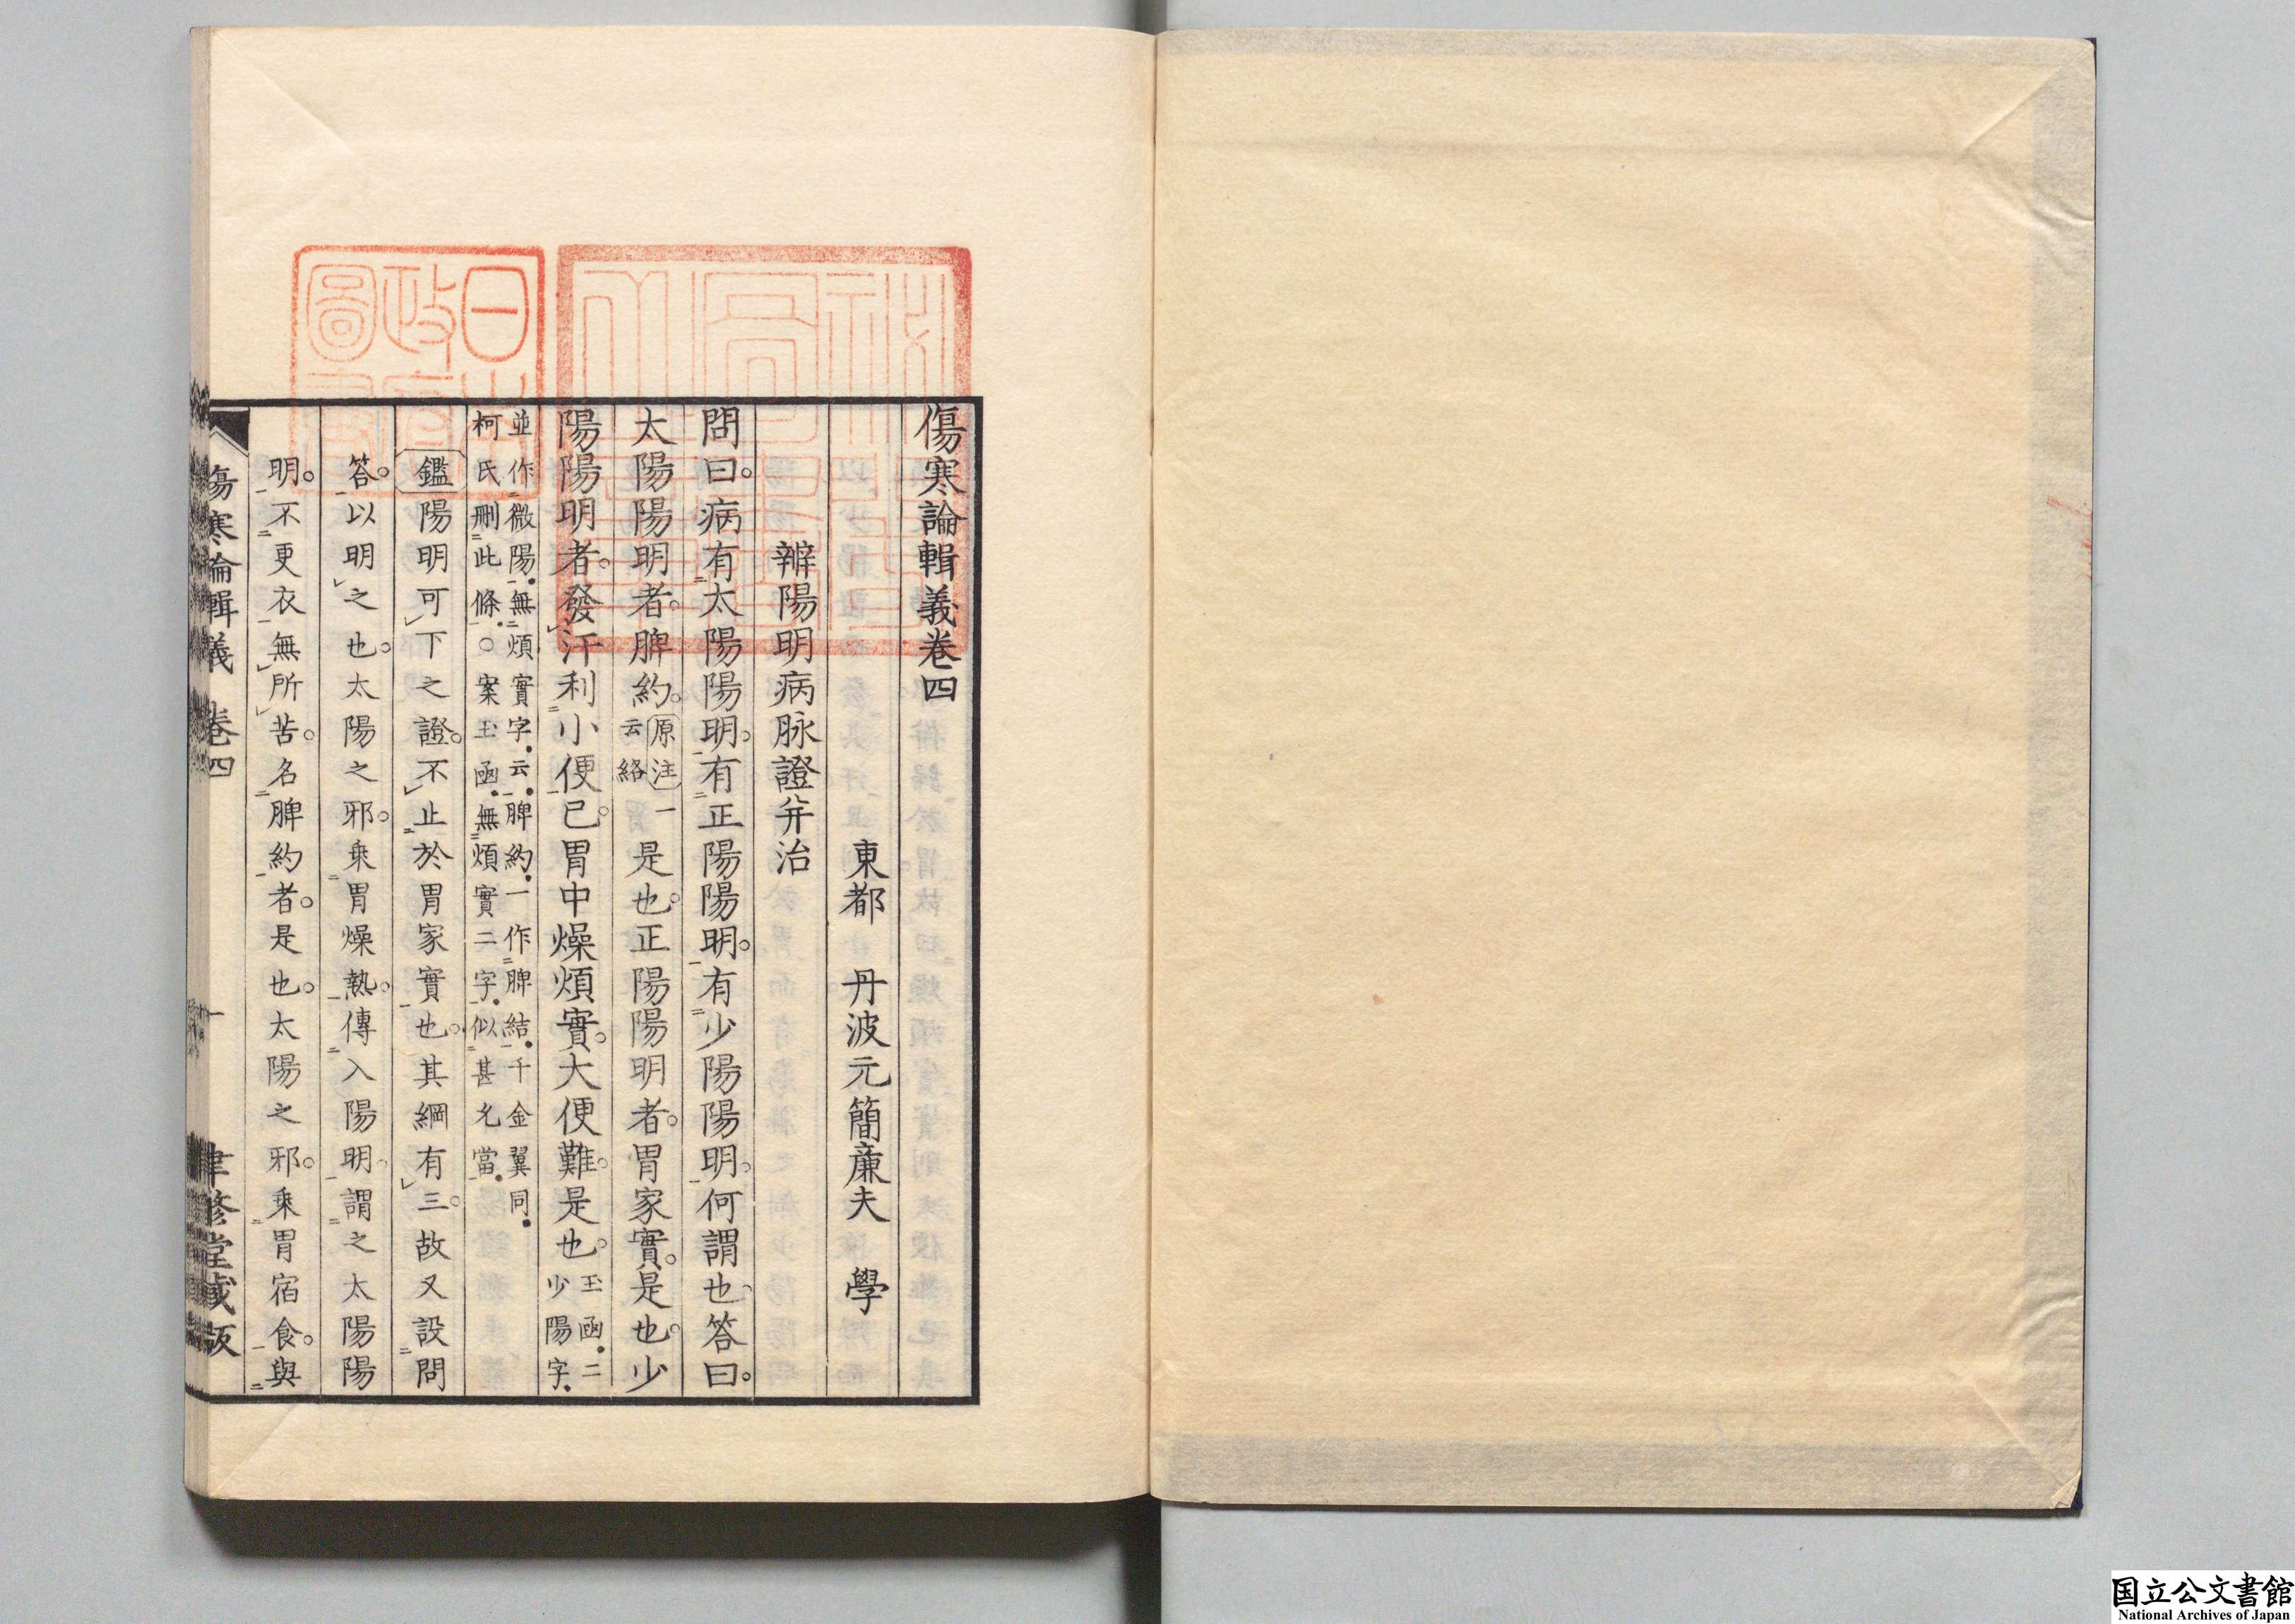 傷寒論輯義卷四
東都 丹波元簡廉夫 學
辨陽明病脉證并治
問曰。病有太陽陽明。有正陽陽明。有少陽陽明。何謂也。答曰。
太陽陽明者。脾約。原注一云絡是也。正陽陽明者。胃家實。是也。少
陽陽明者。發汗利小便已。胃中燥煩實。大便難。是也。玉函。二少陽字。
並作微陽。無煩實字。云。脾約。一作脾結。千金翼同。
柯氏刪此條。○案玉函。無煩實二字。似甚允當。
鑑陽明可下之證。不止於胃家實也。其綱有三。故又設問
答。以明之也。太陽之邪。乘胃燥熱。傳入陽明。謂之太陽陽
明。不更衣無所苦。名脾約者。是也。太陽之邪。乘胃宿食。與
傷寒論輯義 卷四 一 聿修堂藏版
日 政 圖
国立公文書館
National Archives of Japan